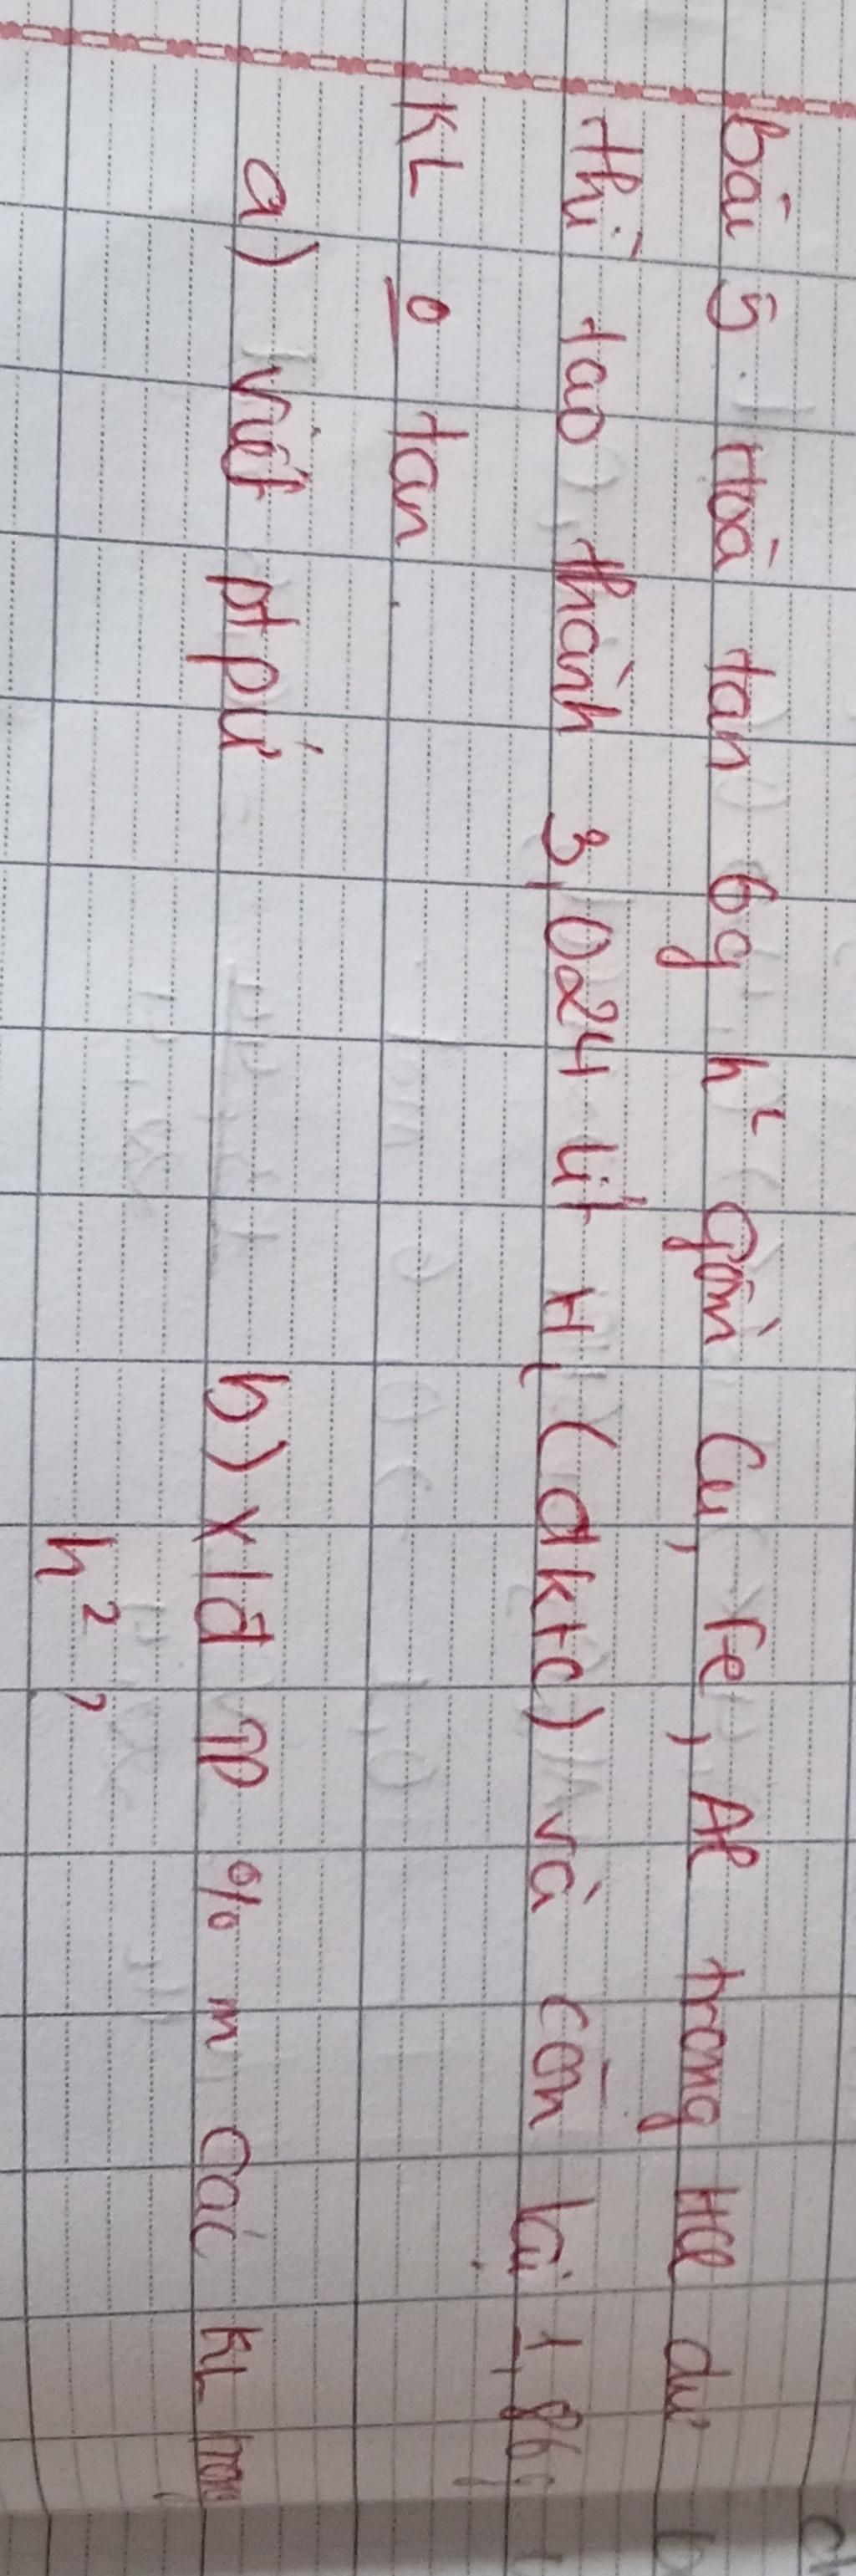 bài 5. Hoà tan 6g h² gồm Cu, Fe, Al trong HCl dư
thì tạo thành 3,024 lít H₂ (đktc) và còn lại 1,86g
KL o tan.
a) viết ptpứ b) xđ TP % m các KL trong
h²,